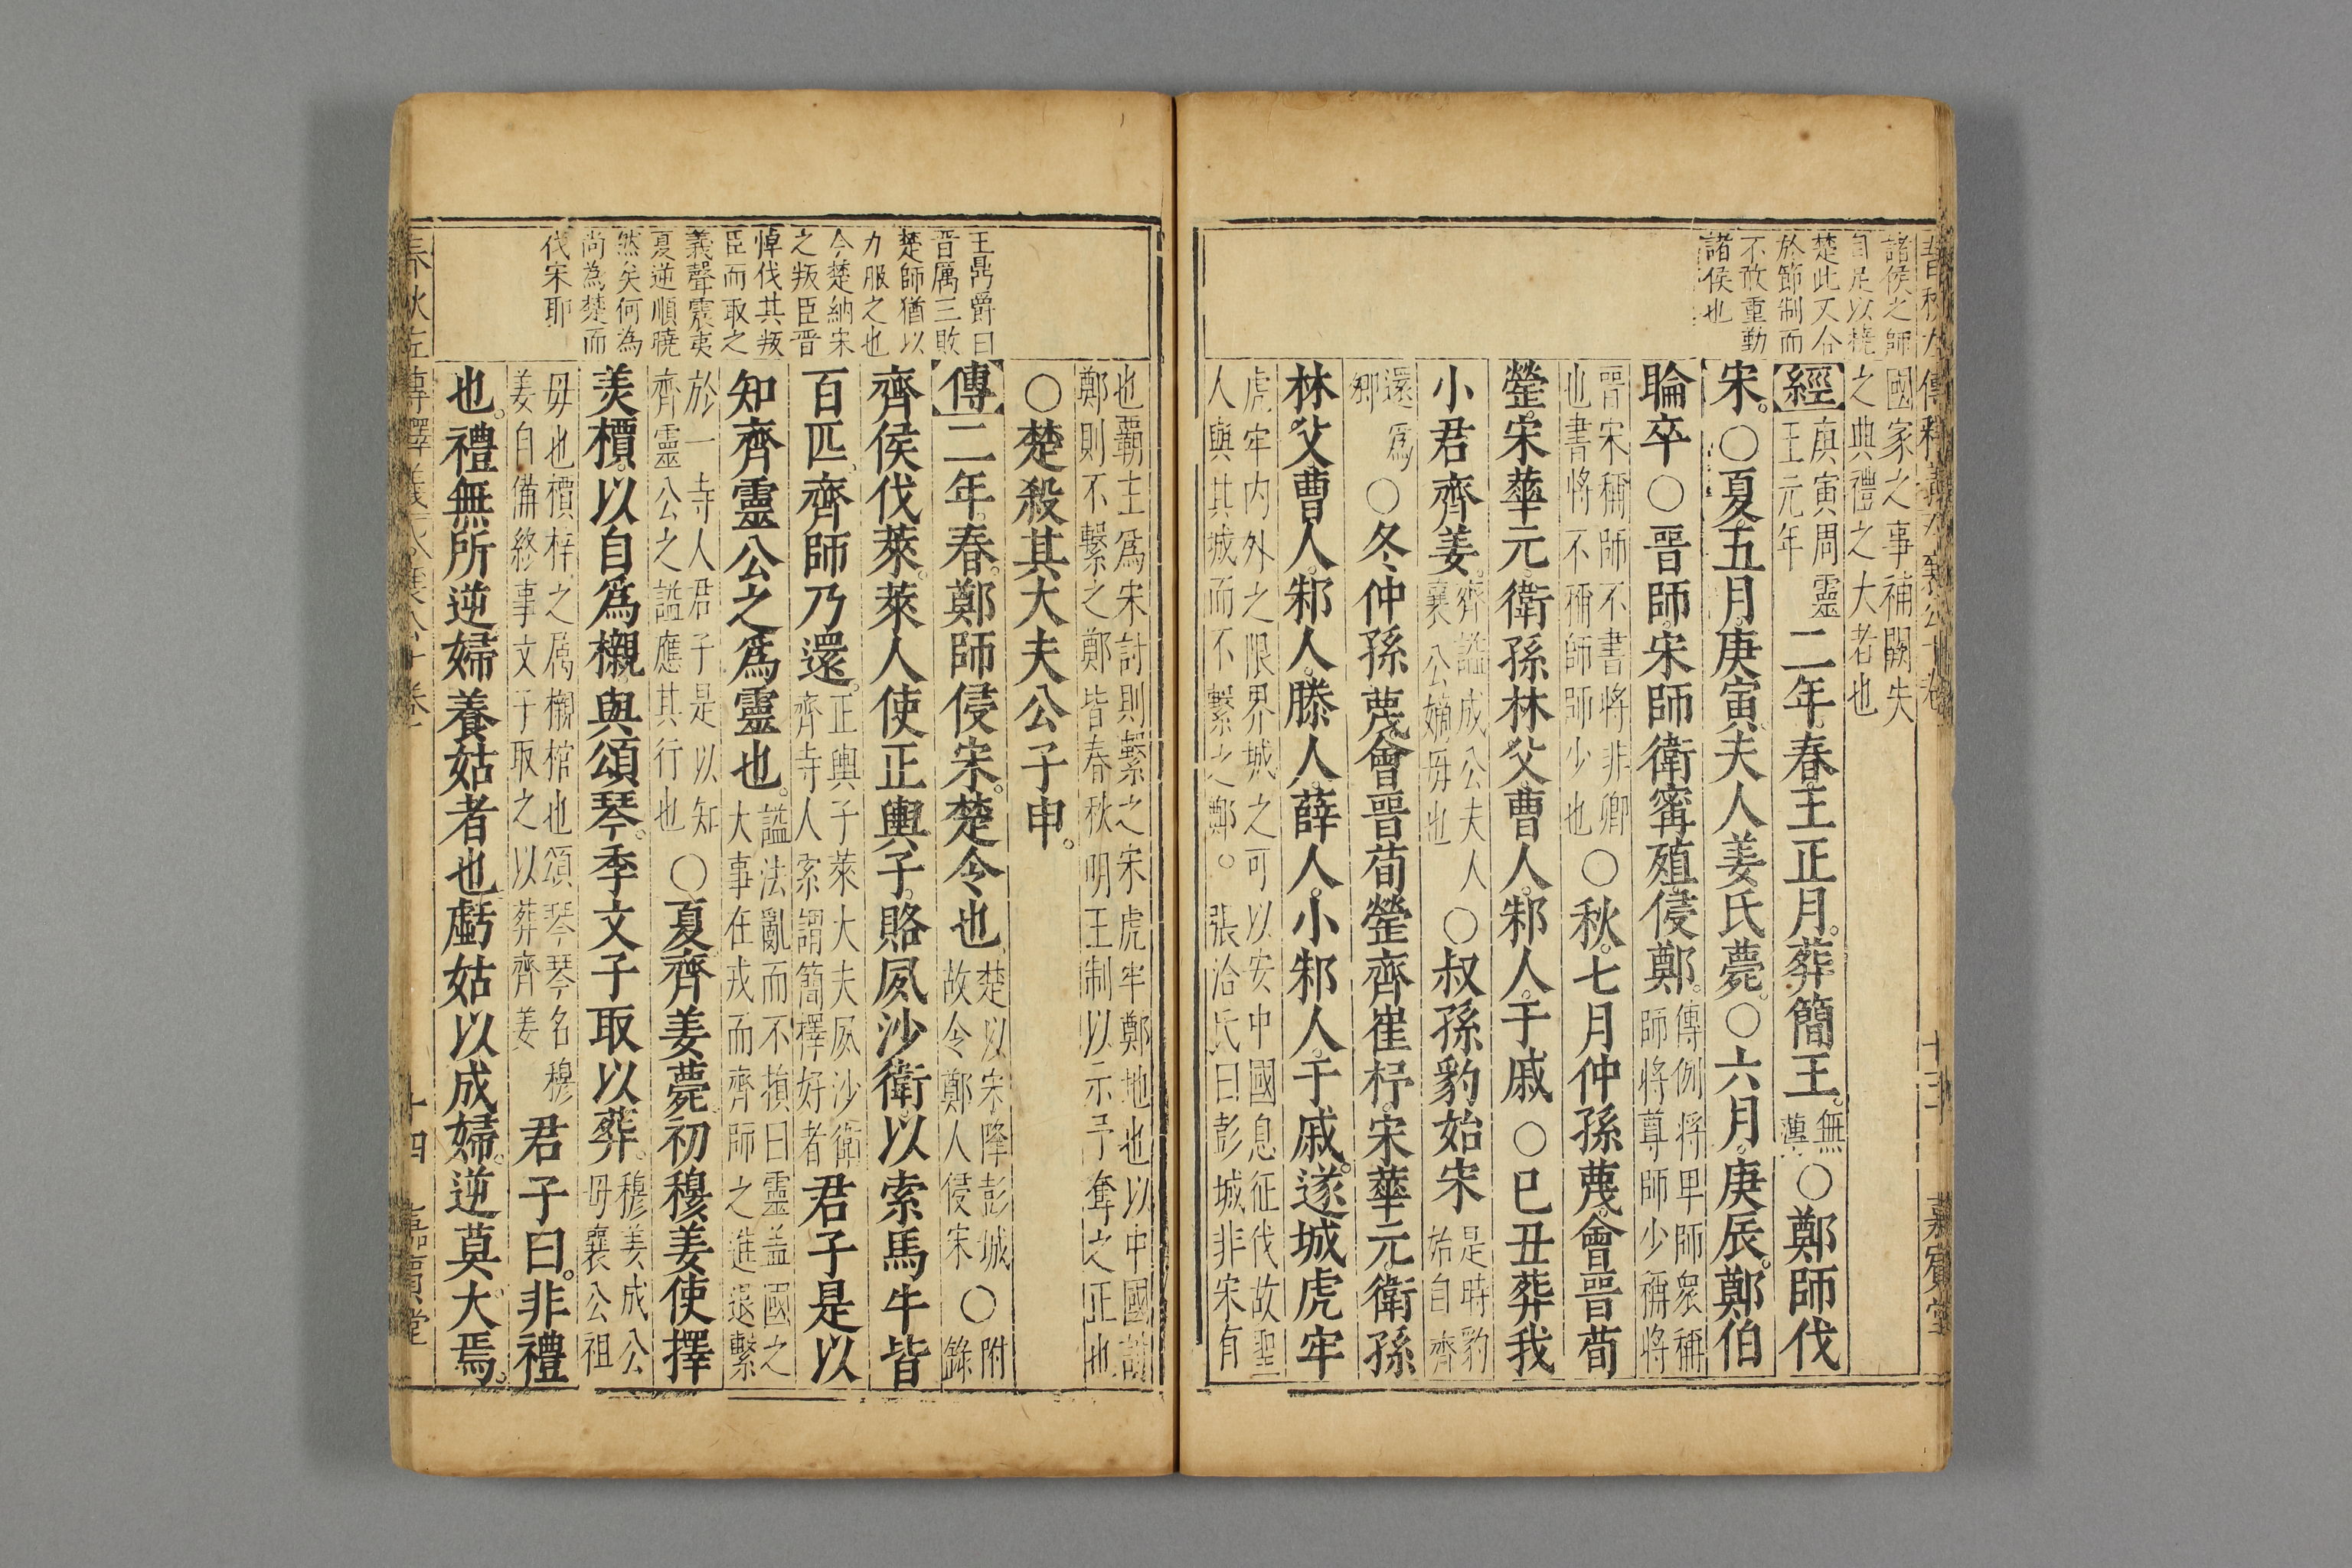 諸侯之師
自足以撓
楚此又合
於節制而
不敢重勤
諸侯也
國家之事補闕失
之典禮之大者也
【經】庚寅周靈王元年二年春王正月葬簡王。無傳○鄭師伐
宋。○夏五月庚寅夫人姜氏薨。○六月庚辰鄭伯
睔卒○晉師宋師衛甯殖侵鄭。傳例將卑師衆稱師將尊師少稱將
晉宋稱師不書將非卿也書將不稱師師少也○秋七月仲孫蔑會晉荀
罃宋華元衛孫林父曹人邾人于戚○已丑葬我
小君齊姜。齊謚成公夫人襄公嫡毋也○叔孫豹始宋是時豹始自齊
還爲卿○冬仲孫蔑會晉荀罃齊崔杼宋華元衛孫
林父曹人邾人滕人薛人小邾人于戚遂城虎牢
虎牢内外之限界城之可以安中國息征伐故聖
人與其城而不繫之鄭。張洽氏曰彭城非宋有
王鼎爵曰
晉厲三敗
楚師猶以
力服之也
今楚納宋
之叛臣晉
悼伐其叛
臣而取之
義聲震夷
夏逆順曉
然矣何為
尚為楚而
伐宋耶
也霸主爲宋討則繫之宋虎牢鄭地也以中國討
鄭則不繫之鄭皆春秋明王制以示予奪之正也
○楚殺其大夫公子申。
【傳】二年春鄭師侵宋楚令也楚以宋降彭城故令鄭人侵宋○附錄
齊侯伐萊萊人使正輿子賂夙沙衛以索馬牛皆
百匹齊師乃還。正輿子萊大夫夙沙衛齊寺人索謂簡擇好者君子是以
知齊靈公之爲靈也。謚法亂而不損曰靈盖國之大事在戎而齊師之進退繫
於一寺人君子是以知齊靈公之謚應其行也○夏齊姜薨初穆姜使擇
美檟以自爲櫬與頌琴季文子取以葬。穆姜成公毋襄公祖
毋也檟梓之属櫬棺也頌琴琴名穆姜自備終事文子取之以葬齊姜君子曰非禮
也。禮無所逆婦養姑者也虧姑以成婦。逆莫大焉。
十四
嘉賓堂